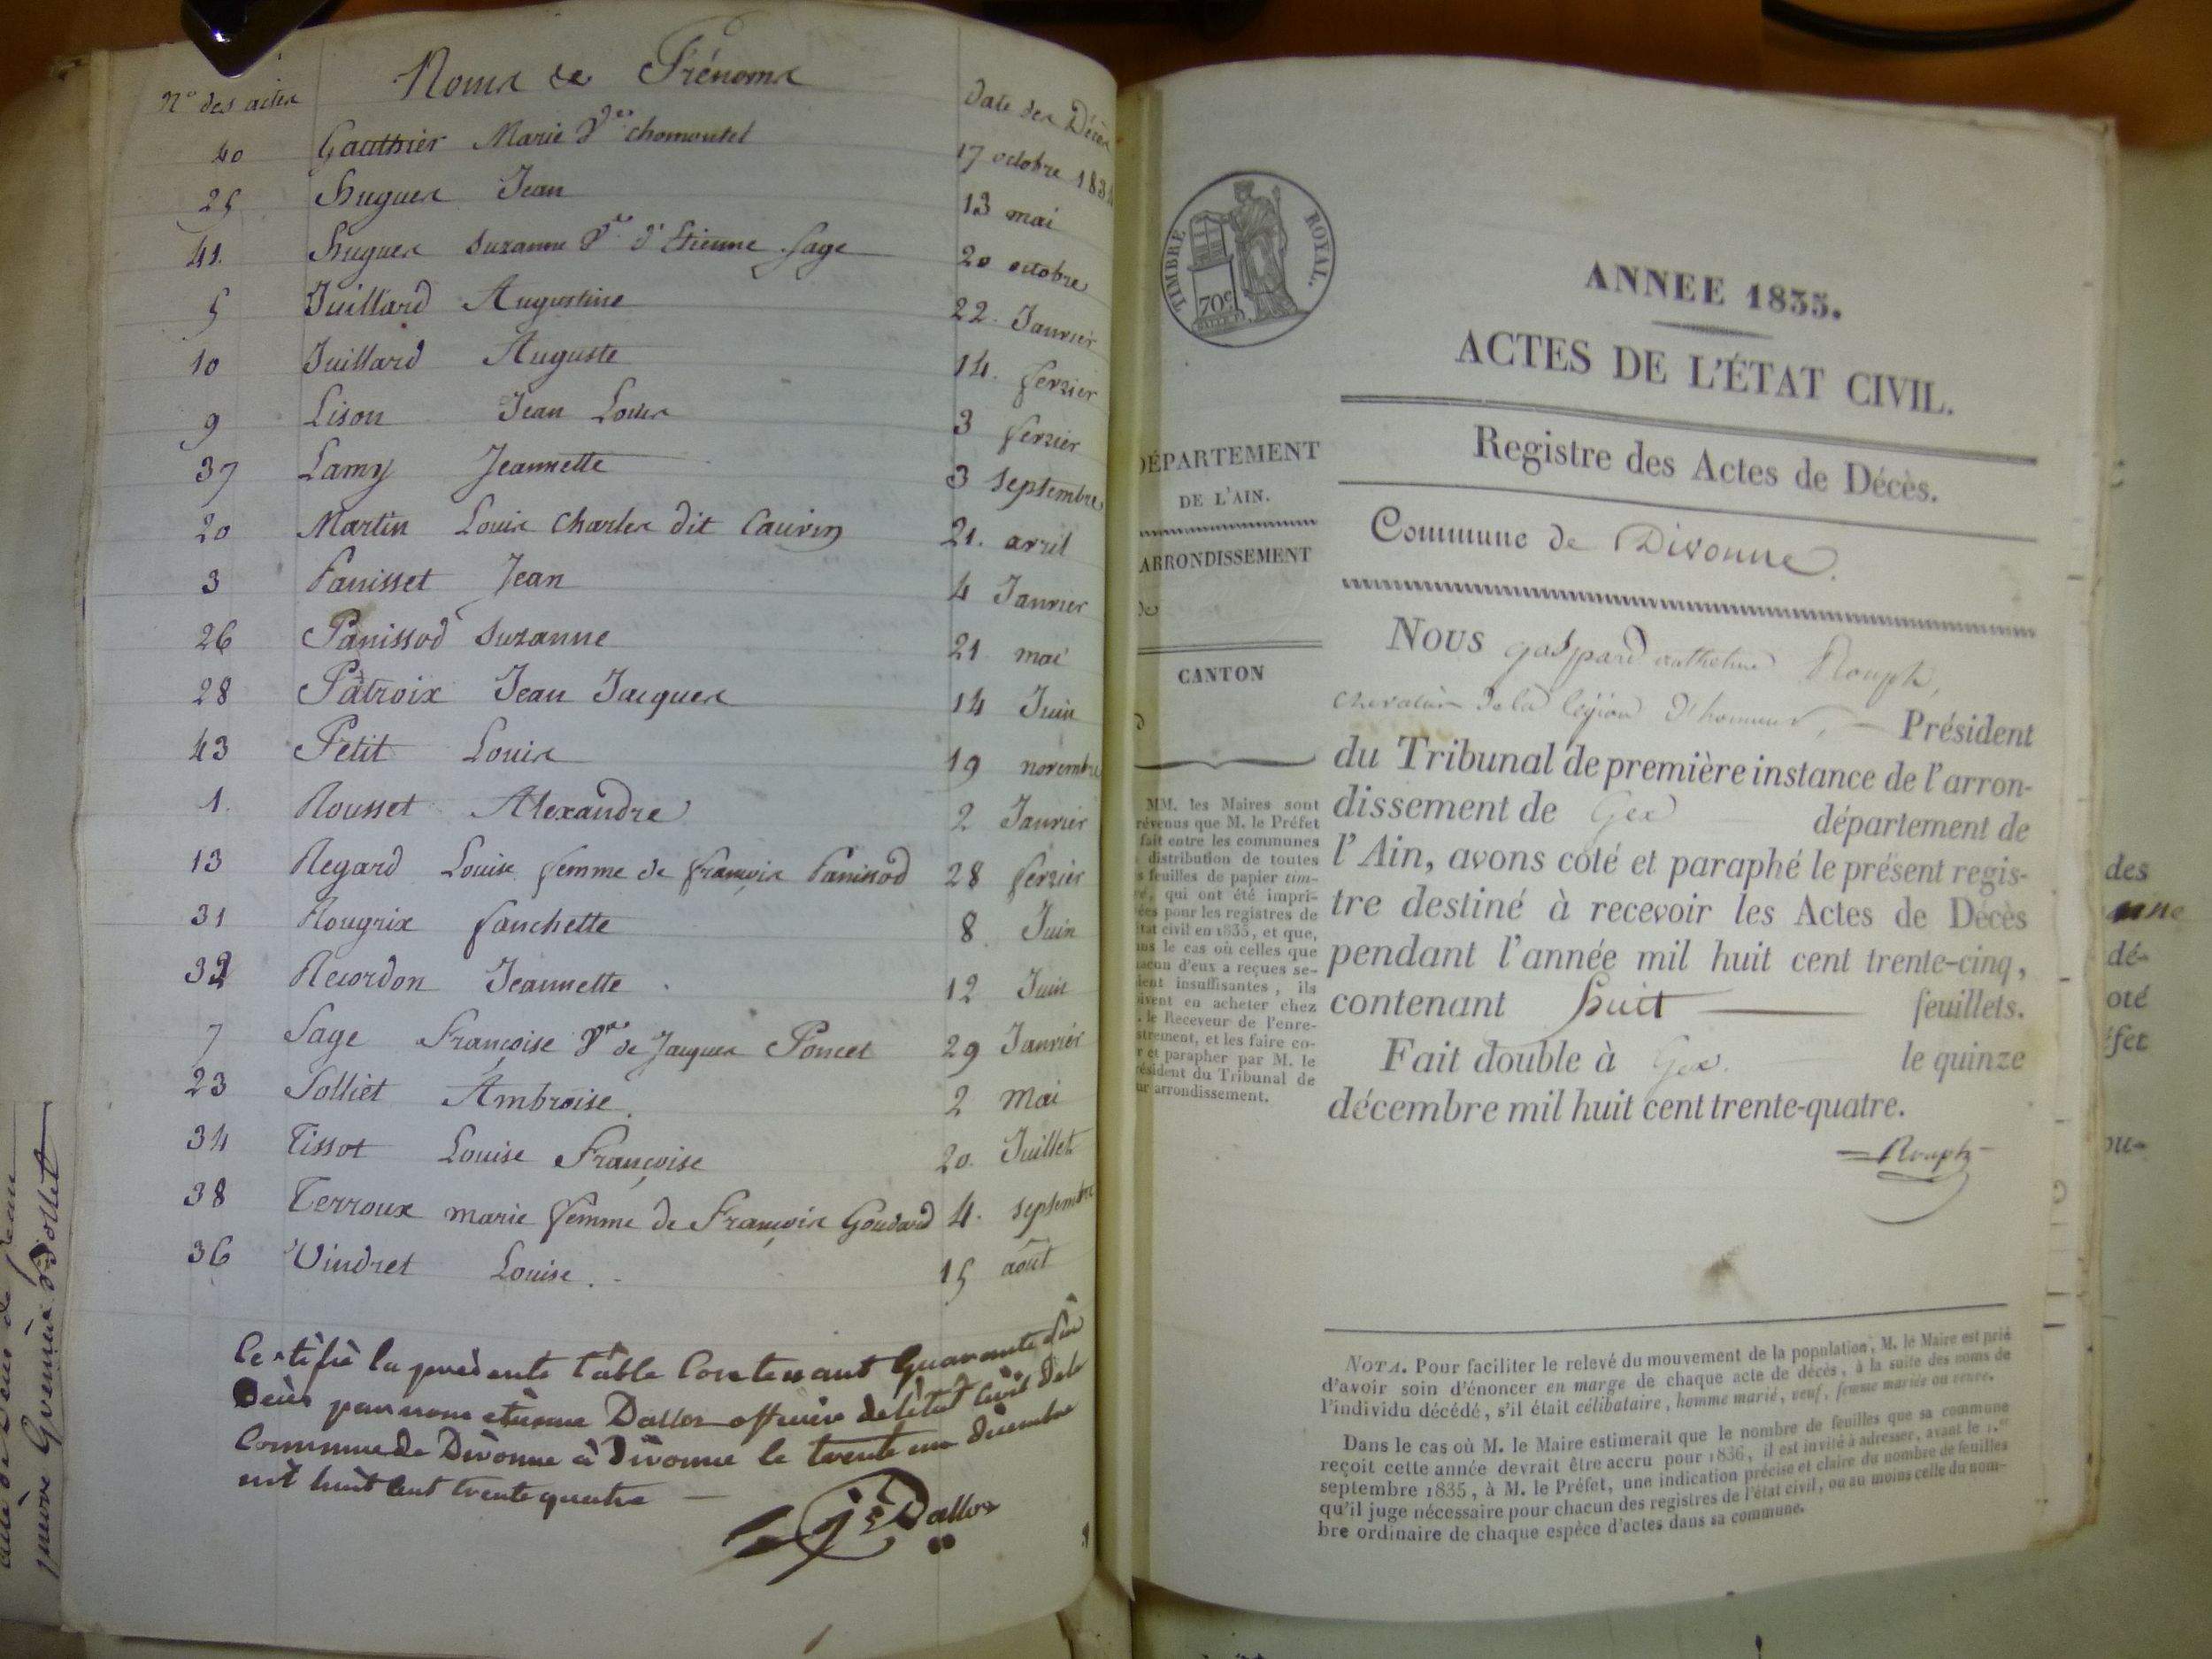 N.o des actes Noms et Prénoms Date des Décès
40 Gauthier Marie V.ve chomontel 17 octobre 1834
25 Hugues Jean 13 mai
41. Hugues Suzanne V.ve d'Etienne Sage 20 octobre
5 Juillard Augustine 22. Janvier
10 Juillard Auguste 14. fevrier
9 Lison Jean Louis 3 fevrier
37 Lamy Jeannette 3 septembre
20 Martin Louis Charles dit Cauvin 21. avril
3 Panisset Jean 4 Janvier
26 Panissod Suzanne 21 mai
28 Patroix Jean Jacques 14 Juin
43 Petit Louis 19 novembre
1. Rousset Alexandre 2 Janvier
13 Regard Louise femme de françois Panissod 28 fevrier
31 Rougrix fanchette 8 Juin
32 Recordon Jeannette 12 Juin
7 Sage Françoise V.ve de Jacques Poncet 29 Janvier
23 Solliet Ambroise. 2 Mai
34 Tissot Louise Françoise 20. Juillet
38 Terroux marie femme de François Goudard 4. septembre
36 Vindret Louise. 15 août
Certifié la presente table Contenant Quarante
Décès par nous etienne Dallos officier de létat Civil dela
Commune de Divonne à Divonne le trente un decembre
mil huit cent trente quatre
Dallos
TIMBRE ROYAL.
70c
ANNEE 1835.
ACTES DE L'ÉTAT CIVIL.
Registre des Actes de Décès.
Commune de Divonne.
DÉPARTEMENT
DE L'AIN.
ARRONDISSEMENT
CANTON
MM. les Maires sont
prévenus que M. le Préfet
fait entre les communes
distribution de toutes
feuilles de papier tim-
qui ont été impri-
mées pour les registres de
état civil en 1835, et que,
dans le cas où celles que
chacun d'eux a reçues se-
raient insuffisantes, ils
doivent en acheter chez
le Receveur de l'enre-
gistrement, et les faire co-
et parapher par M. le
Président du Tribunal de
arrondissement.
Nous gaspard anthelme Rouph,
chevalier de la légion d'honneur, Président
du Tribunal de première instance de l'arron-
dissement de Gex département de
l'Ain, avons coté et paraphé le présent regis-
tre destiné à recevoir les Actes de Décès
pendant l'année mil huit cent trente-cinq,
contenant huit feuillets.
Fait double à Gex. le quinze
décembre mil huit cent trente-quatre.
Rouph
NOTA. Pour faciliter le relevé du mouvement de la population, M. le Maire est prié
d'avoir soin d'énoncer en marge de chaque acte de décès, à la suite des noms de
l'individu décédé, s'il était célibataire, homme marié, veuf, femme mariée ou veuve.
Dans le cas où M. le Maire estimerait que le nombre de feuilles que sa commune
reçoit cette année devrait être accru pour 1836, il est invité à adresser, avant le 1.er
septembre 1835, à M. le Préfet, une indication précise et claire du nombre de feuilles
qu'il juge nécessaire pour chacun des registres de l'état civil, ou au moins celle du nom-
bre ordinaire de chaque espèce d'actes dans sa commune.
des
dé-
oté